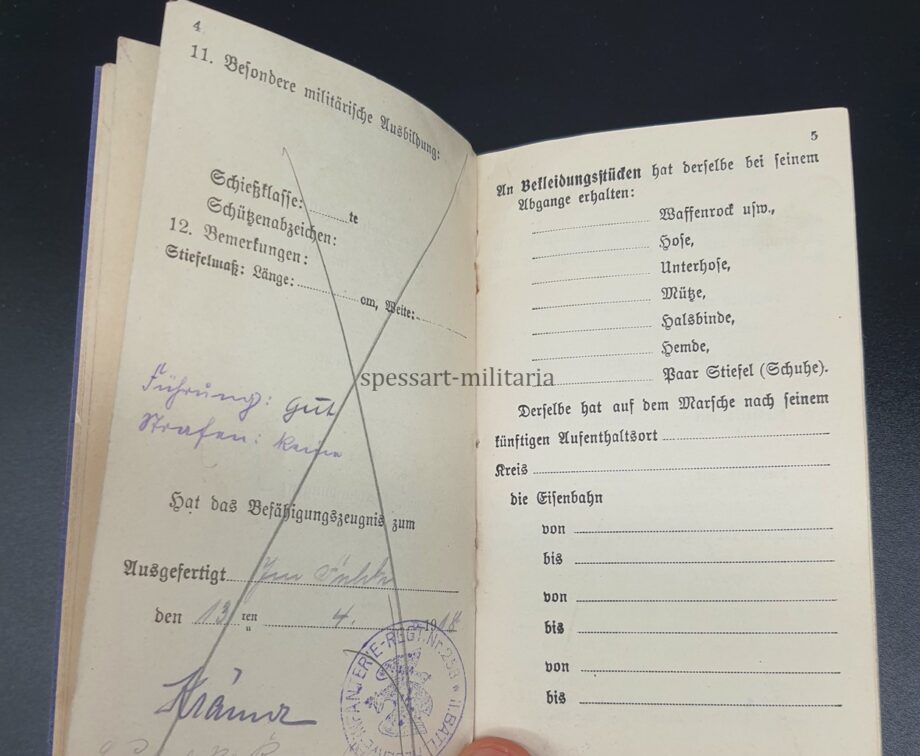 4
11. Besondere militärische Ausbildung:
Schießklasse: te
Schützenabzeichen:
12. Bemerkungen:
Stiefelmaß: Länge: cm, Weite:
Führung: gut
Strafen: keine
Hat das Befähigungszeugnis zum
Ausgefertigt Im Felde
den 13 ten 4. 1918
Krämer
INFANTERIE-REGT. Nr. 253 * II. BATL.
5
An Bekleidungsstücken hat derselbe bei seinem
Abgange erhalten:
Waffenrock usw.,
Hose,
Unterhose,
Mütze,
Halsbinde,
Hemde,
Paar Stiefel (Schuhe).
Derselbe hat auf dem Marsche nach seinem
künftigen Aufenthaltsort
Kreis
die Eisenbahn
von
bis
von
bis
von
bis
spessart-militaria